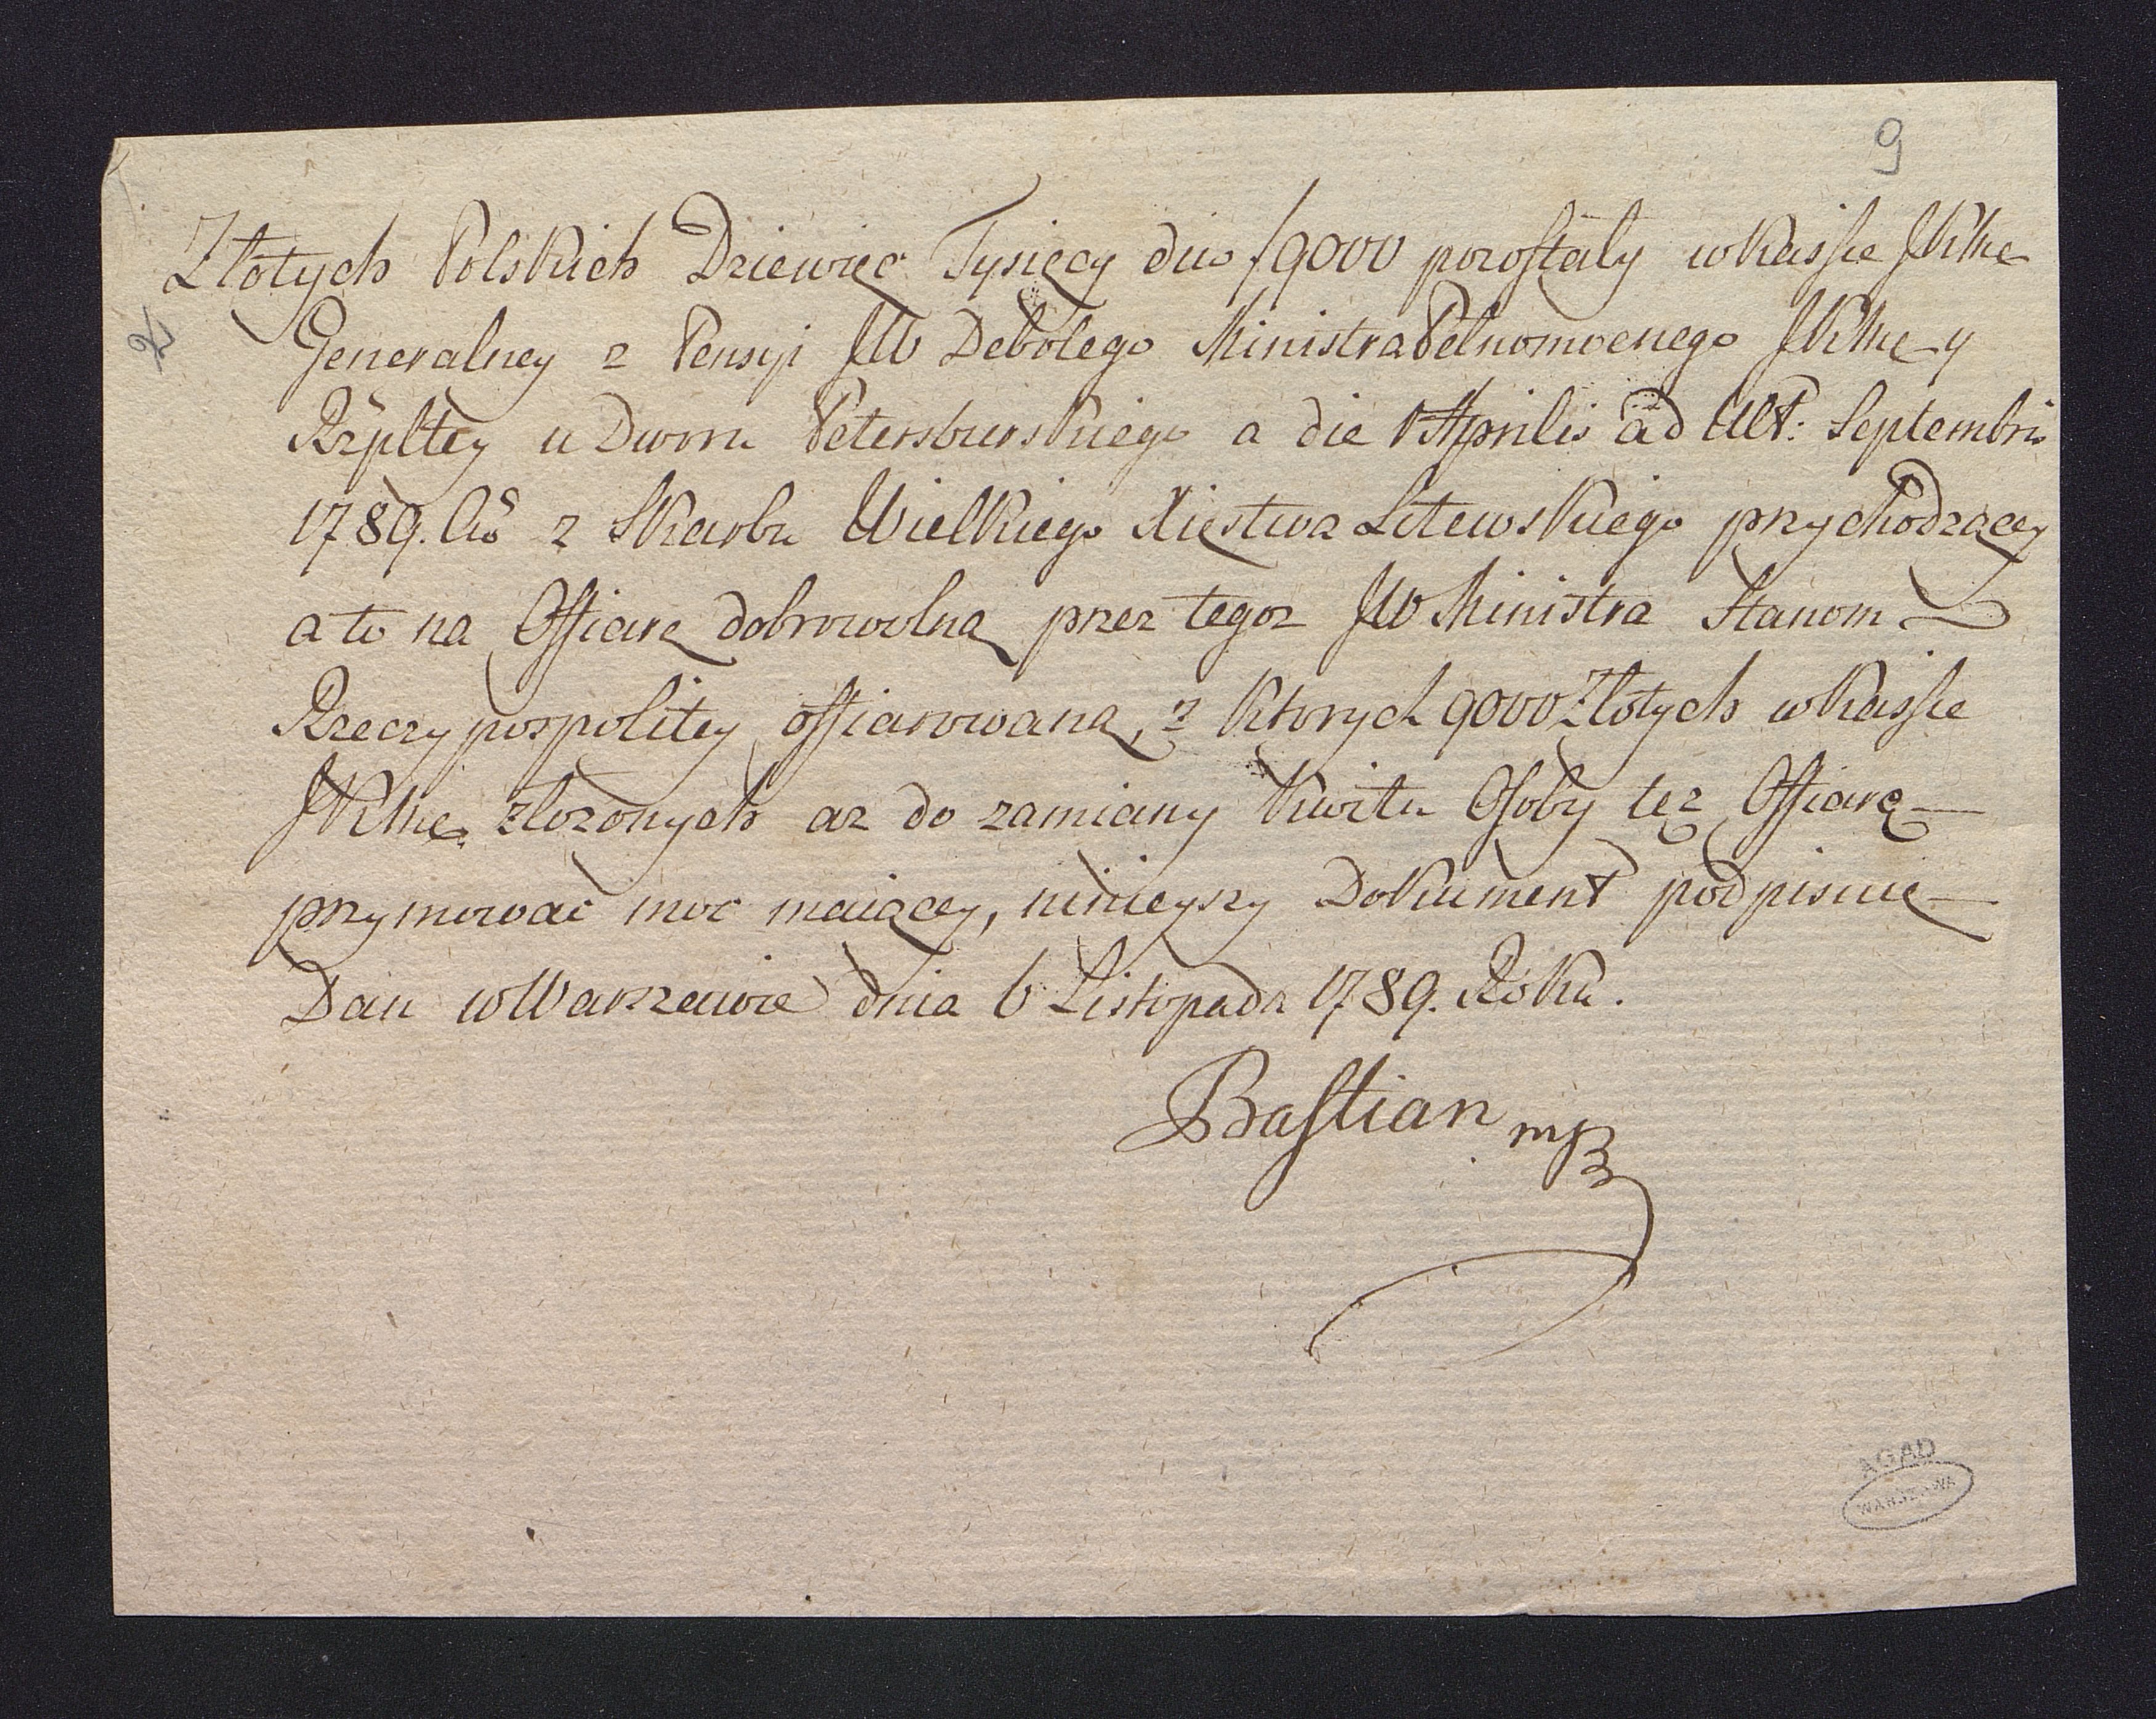 9
Złotych Polskich Dziewięc Tysięcy dico f 9000 pozostały w Kassie JKMci
Generalney z Pensyi JW Debolego Ministra Pełnomocnego JKMci y
Rzpltey u Dworu Petersburskiego a die 1 Aprilis ad Ult: Septembris
1789. Ao z Skarbu Wielkiego Xięstwa Litewskiego przychodzącey
a to na Offiarę dobrowolną przez tegoz JW Ministra Stanom
Rzeczypospolitey offiarowaną, z Ktorych 9000 Złotych w Kassie
JKMci złozonych az do zamiany Kwitu Osoby tęz Offiarę
przymowac moc maiącey, ninieyszy Dokument podpisuię
Dan w Warszawie dnia 6 Listopada 1789. Roku.
Bastian mp
AGAD
WARSZAWA